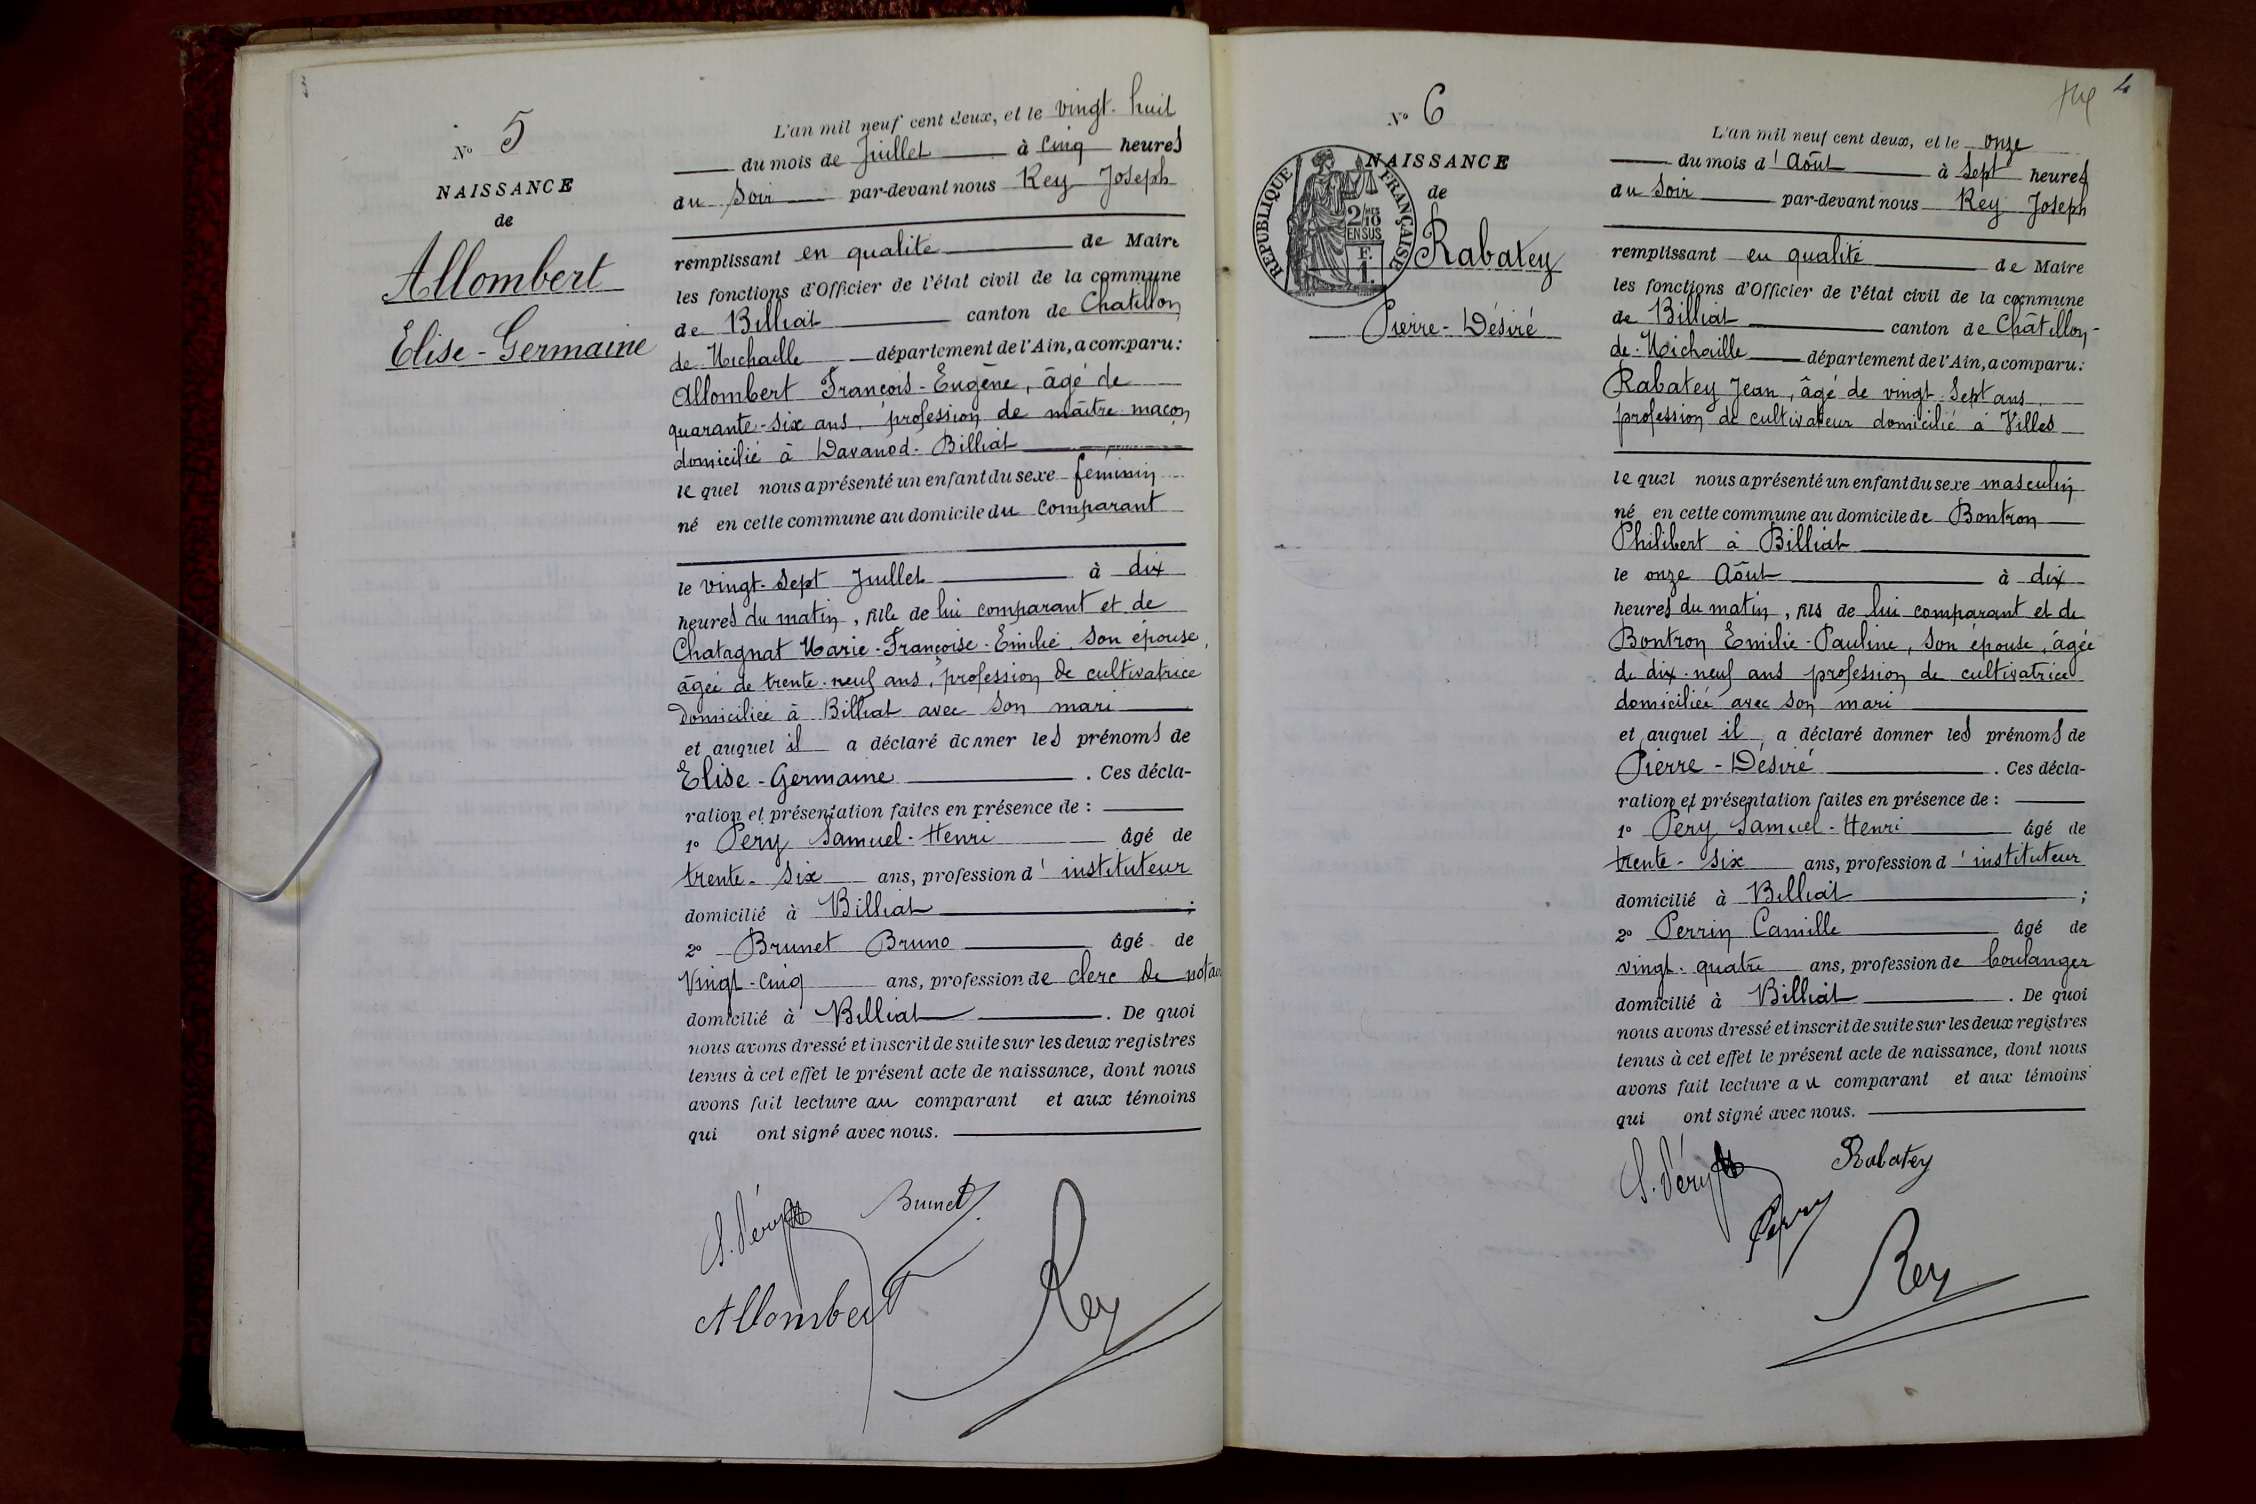 N° 5
NAISSANCE
de
Allombert
Elise-Germaine
L'an mil neuf cent deux, et le vingt-huit
du mois de Juillet à cinq heures
du Soir par-devant nous Rey Joseph
remplissant en qualité de Maire
les fonctions d'Officier de l'état civil de la commune
de Billiat canton de Chatillon
de Michaille département de l'Ain, a comparu :
Allombert François-Eugène, âgé de
quarante-six ans, profession de maître-maçon
domicilié à Davanod-Billiat
le quel nous a présenté un enfant du sexe féminin
né en cette commune au domicile du comparant
le vingt-sept Juillet à dix
heures du matin, fille de lui comparant et de
Chatagnat Marie-Françoise-Emilie, son épouse,
âgée de trente-neuf ans, profession de cultivatrice
domiciliée à Billiat avec son mari
et auquel il a déclaré donner les prénoms de
Elise-Germaine . Ces décla-
ration et présentation faites en présence de :
1° Péry Samuel-Henri âgé de
trente-six ans, profession d'instituteur
domicilié à Billiat ;
2° Brunet Bruno âgé de
vingt-cinq ans, profession de clerc de
domicilié à Billiat . De quoi
nous avons dressé et inscrit de suite sur les deux registres
tenus à cet effet le présent acte de naissance, dont nous
avons fait lecture au comparant et aux témoins
qui ont signé avec nous.
S. Péry Brunet
Allombert Rey
4
N° 6
NAISSANCE
de
RÉPUBLIQUE FRANÇAISE
2/10 EN SUS
F. 1
Rabatey
Pierre-Désiré
L'an mil neuf cent deux, et le onze
du mois d'Août à sept heures
du Soir par-devant nous Rey Joseph
remplissant en qualité de Maire
les fonctions d'Officier de l'état civil de la commune
de Billiat canton de Châtillon-
de-Michaille département de l'Ain, a comparu :
Rabatey Jean, âgé de vingt-sept ans
profession de cultivateur domicilié à Villes
le quel nous a présenté un enfant du sexe masculin
né en cette commune au domicile de Bontron
Philibert à Billiat
le onze Août à dix
heures du matin, fils de lui comparant et de
Bontron Emilie-Pauline, son épouse, âgée
de dix-neuf ans profession de cultivatrice
domiciliée avec son mari
et auquel il a déclaré donner les prénoms de
Pierre-Désiré . Ces décla-
ration et présentation faites en présence de :
1° Péry Samuel-Henri âgé de
trente-six ans, profession d'instituteur
domicilié à Billiat ;
2° Perrin Camille âgé de
vingt-quatre ans, profession de boulanger
domicilié à Billiat . De quoi
nous avons dressé et inscrit de suite sur les deux registres
tenus à cet effet le présent acte de naissance, dont nous
avons fait lecture au comparant et aux témoins
qui ont signé avec nous.
S. Péry Rabatey
Rey